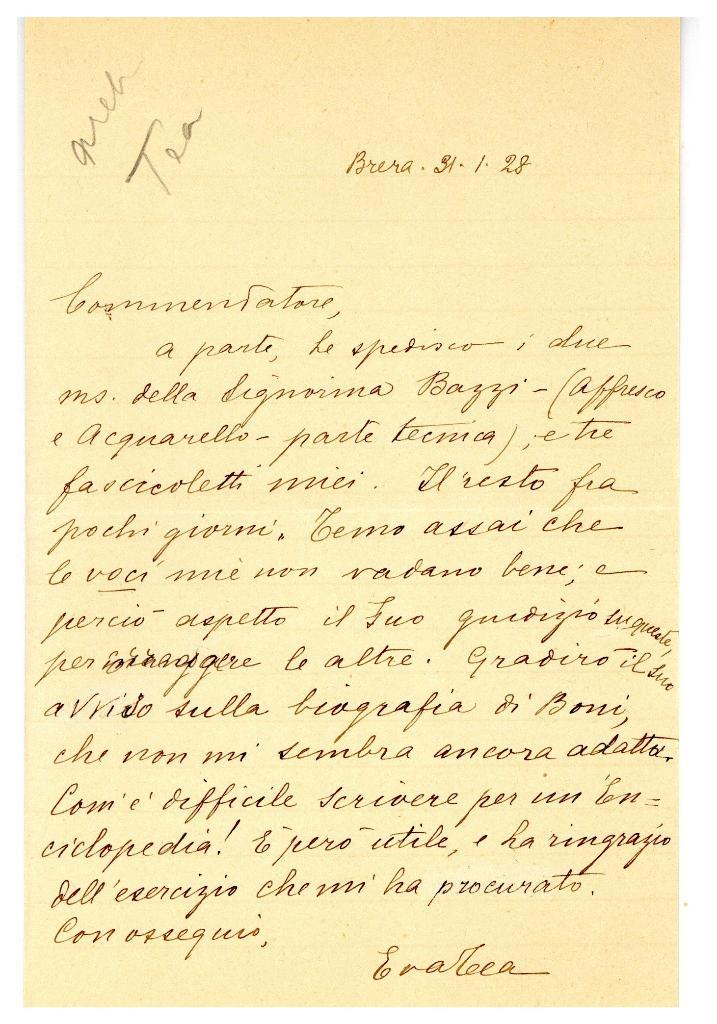 arch
Tea
Brera. 31. 1. 28
Commendatore,
a parte, Le spedisco i due
ms. della Signorina Bazzi - (Affresco
e Acquarello - parte tecnica), e tre
fascicoletti miei. Il resto fra
pochi giorni. Temo assai che
le voci mie non vadano bene; e
perciò aspetto il Suo giudizio su queste,
per le altre. Gradirò il Suo
avviso sulla biografia di Boni,
che non mi sembra ancora adatta.
Com'è difficile scrivere per un'En=
ciclopedia! È però utile, e La ringrazio
dell'esercizio che mi ha procurato.
Con ossequio,
Eva Tea